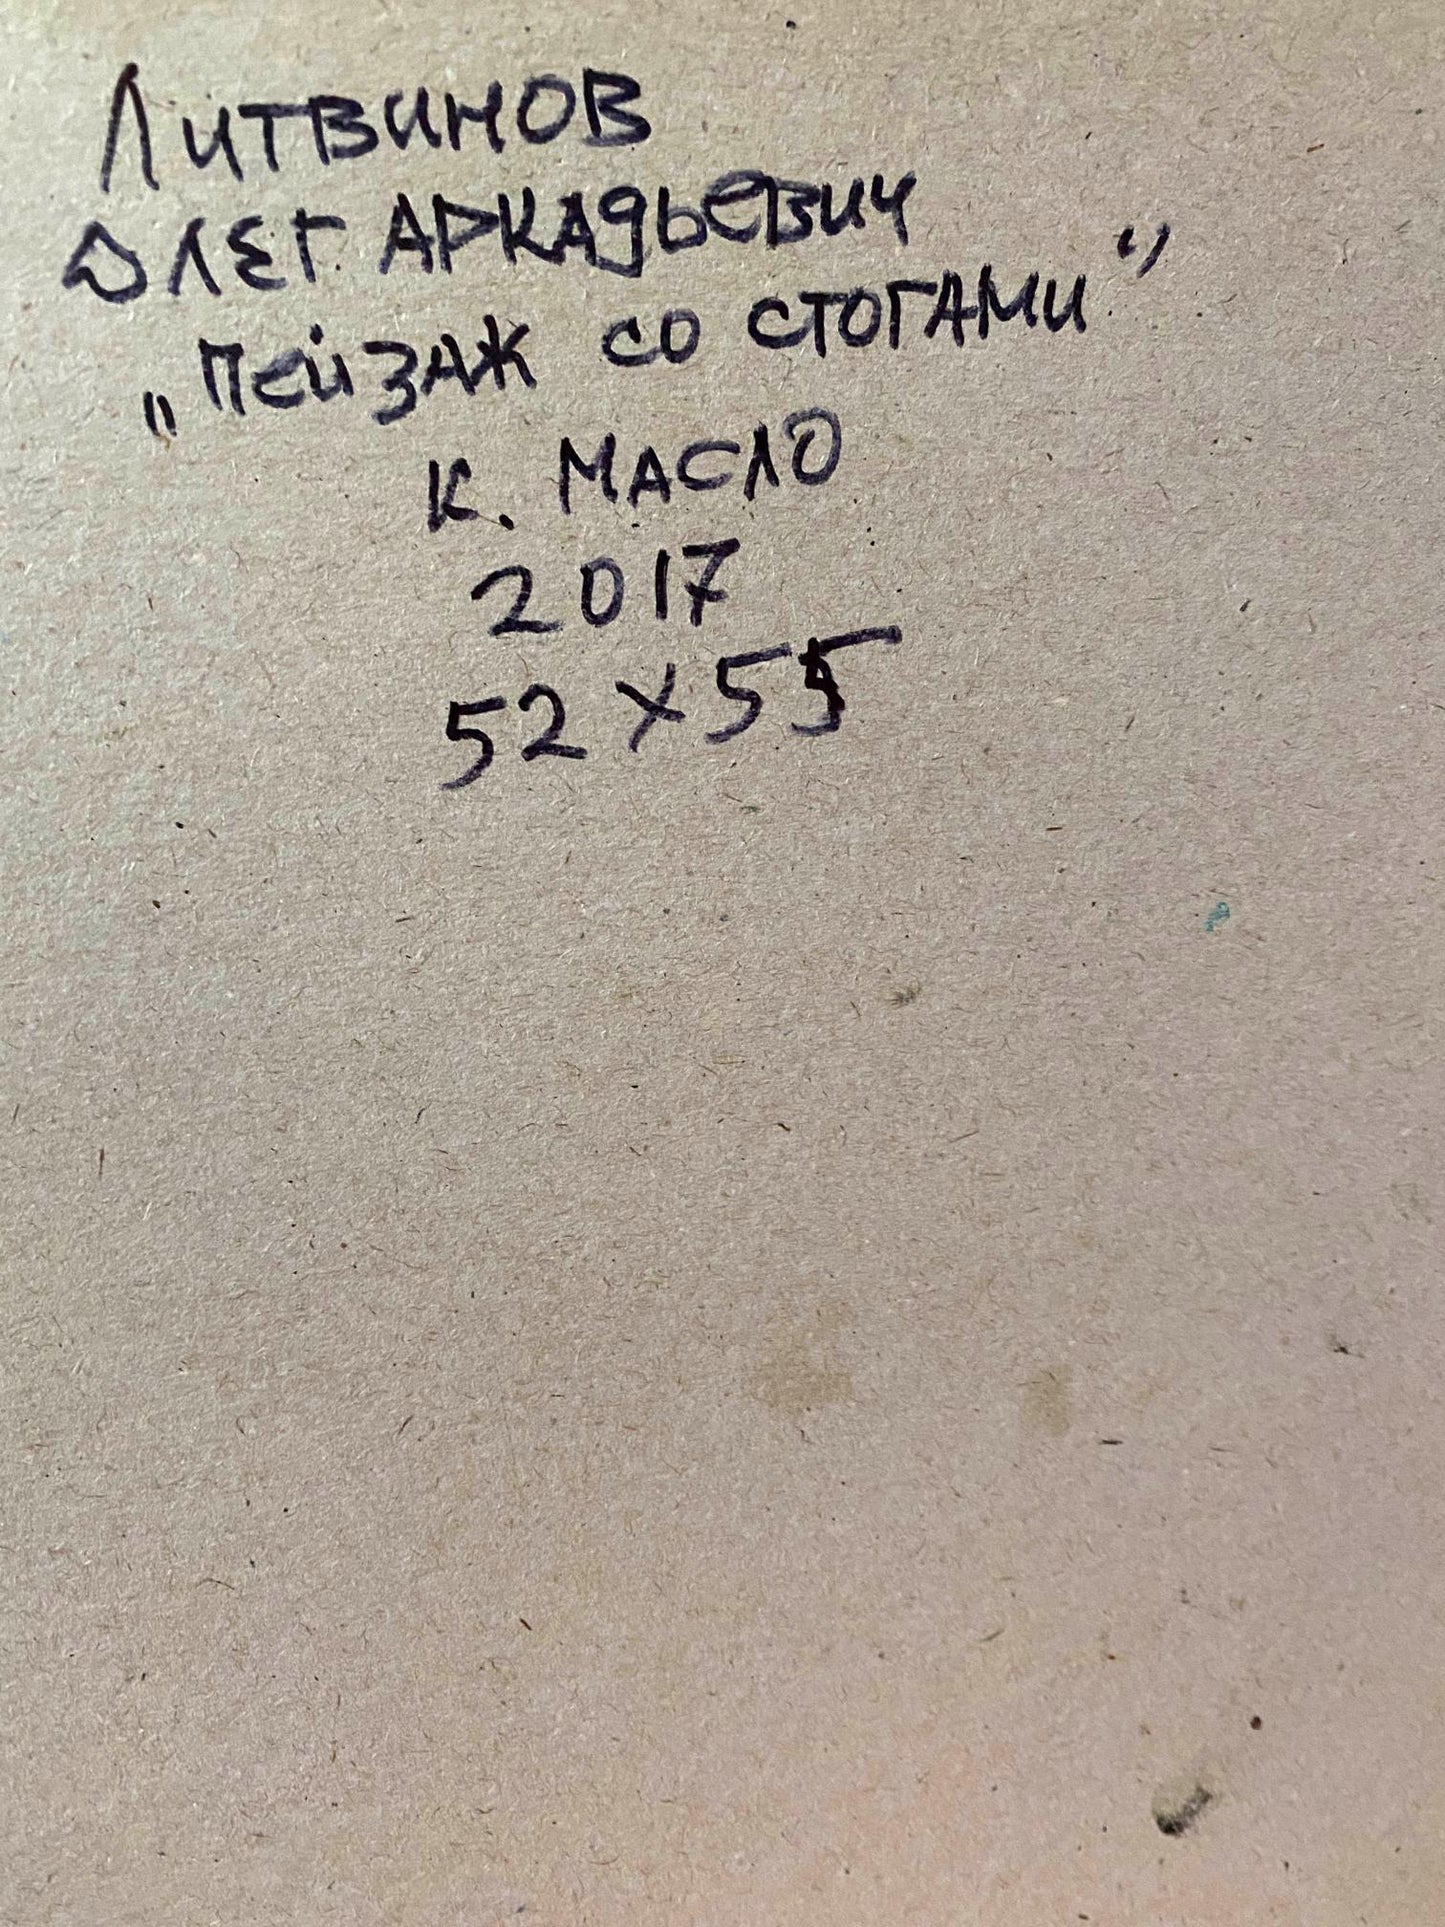 Литвинов
Олег Аркадьевич
„Пейзаж со стогами”
к. масло
2017
52 x 55